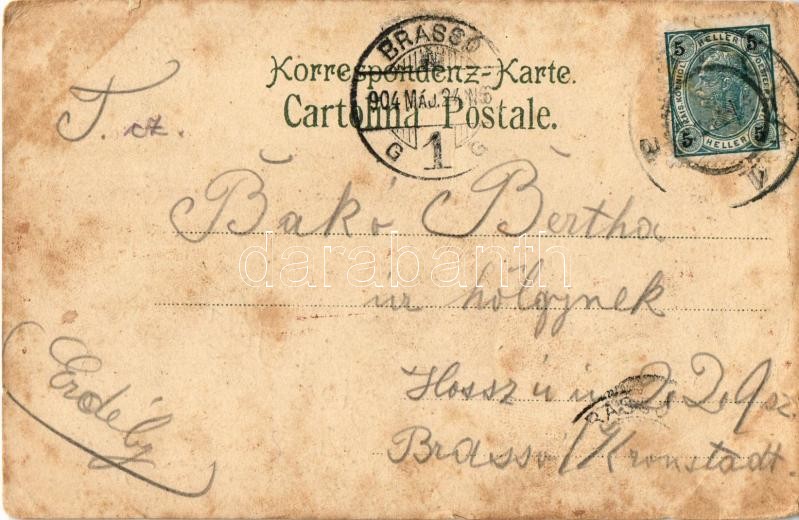 BRASSÓ
904 MÁJ. 24 N6
G 1 G
5 HELLER 5
5 HELLER 5
Korrespondenz-Karte.
Cartolina Postale.
T. cz.
Bakó Bertha
úr hölgynek
Hosszú u 229 sz.
Brassó/Kronstadt.
Erdély
BRASSÓ
darabanth